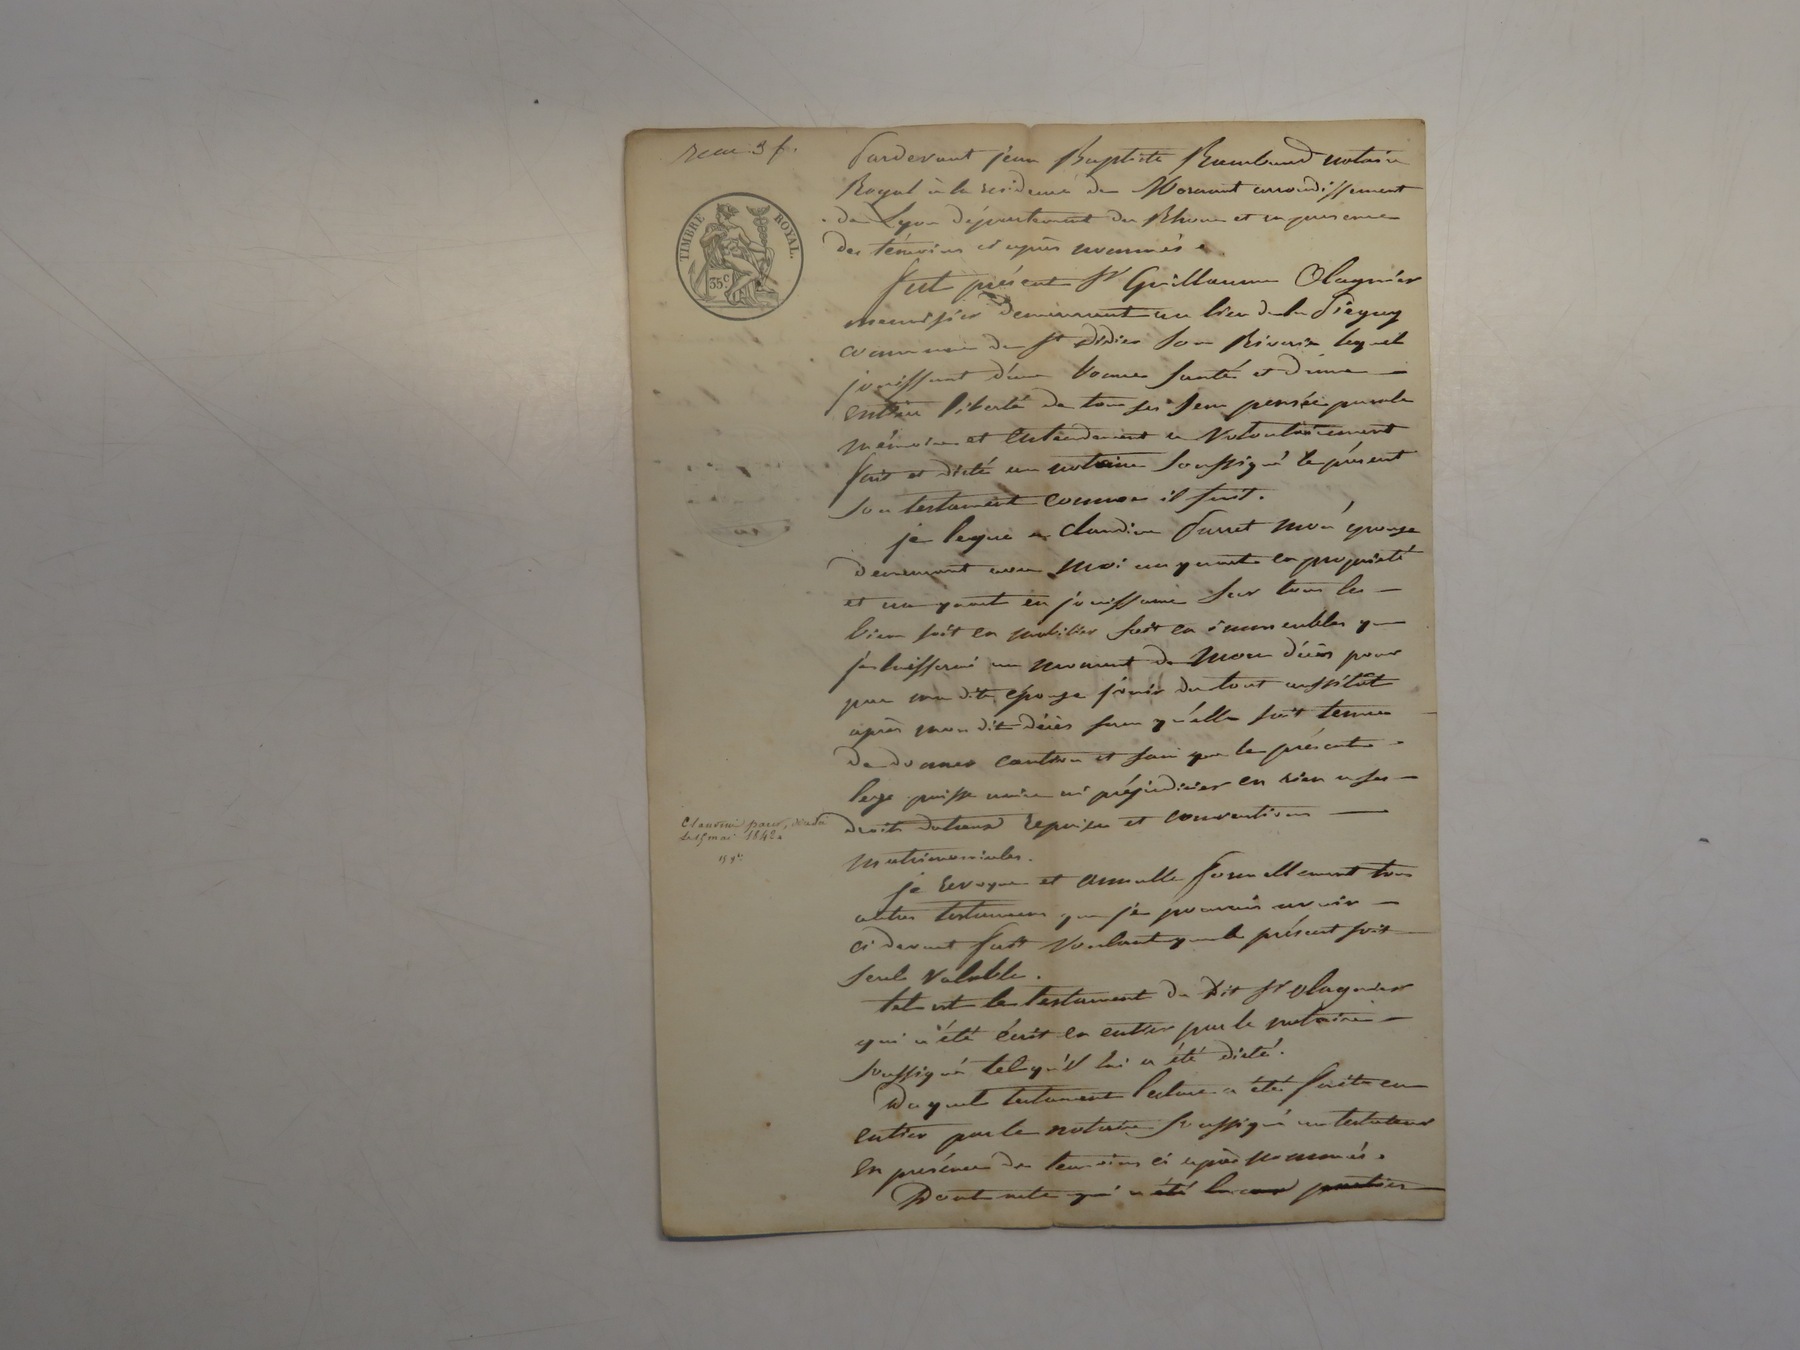 reçu 3 f.
TIMBRE ROYAL.
35 C
Pardevant jean Baptiste Rambaud notaire
Royal à la résidence de Mornant arrondissement
de Lyon département du Rhone et en presence
des témoins ci après nommés
fut présent Sr Guillaume Olagnier
menuisier demeurant au lieu de la
commune de St Didier Sous Riverie lequel
jouissant d'une bonne santé et d'une
entière liberté de tous ses sens pensée parole
mémoire et entendement a volontairement
fait et dicté au notaire soussigné le présent
son testament comme il suit.
je legue a claudine Parret mon épouse
demeurant avec moi un quart en propriété
et un quart en jouissance sur tous les
biens soit en mobilier soit en immeubles que
je laisserai au moment de mon décès pour
par ma dite épouse jouir du tout aussitôt
après mon dit décès sans qu'elle soit tenue
de donner caution et sans que le présent
legs puisse nuire ni préjudicier en rien a ses
droits dotaux reprises et conventions
matrimoniales.
Claudine décédée
le 15 mai 1842
je révoque et annulle formellement tous
autres testamens que je pourrais avoir
ci devant fait voulant que le présent soit
seul valable.
tel est le testament du dit Sr Olagnier
qui a été écrit en entier par le notaire
soussigné tel qu'il lui a été dicté.
Duquel testament lecture a été faite en
entier par le notaire soussigné au testateur
en présence des temoins ci après nommés.
Dont acte qui a été